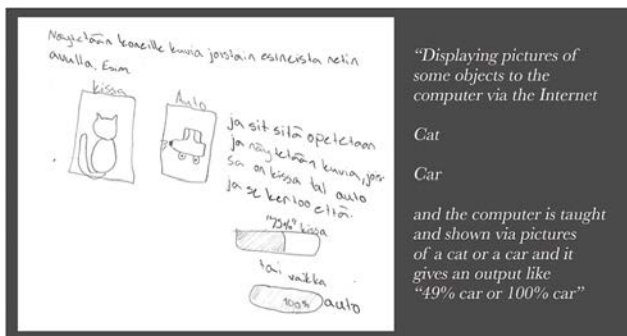 Näytetään koneille kuvia joistain esineistä netin
avulla. Esim
kissa
Auto
ja sit sitä opetetaan
ja näytetään kuvia, jois
sa on kissa tai auto
ja se kertoo että.
kissa
tai vaikka
100% auto
"Displaying pictures of
some objects to the
computer via the Internet
Cat
Car
and the computer is taught
and shown via pictures
of a cat or a car and it
gives an output like
"49% car or 100% car"